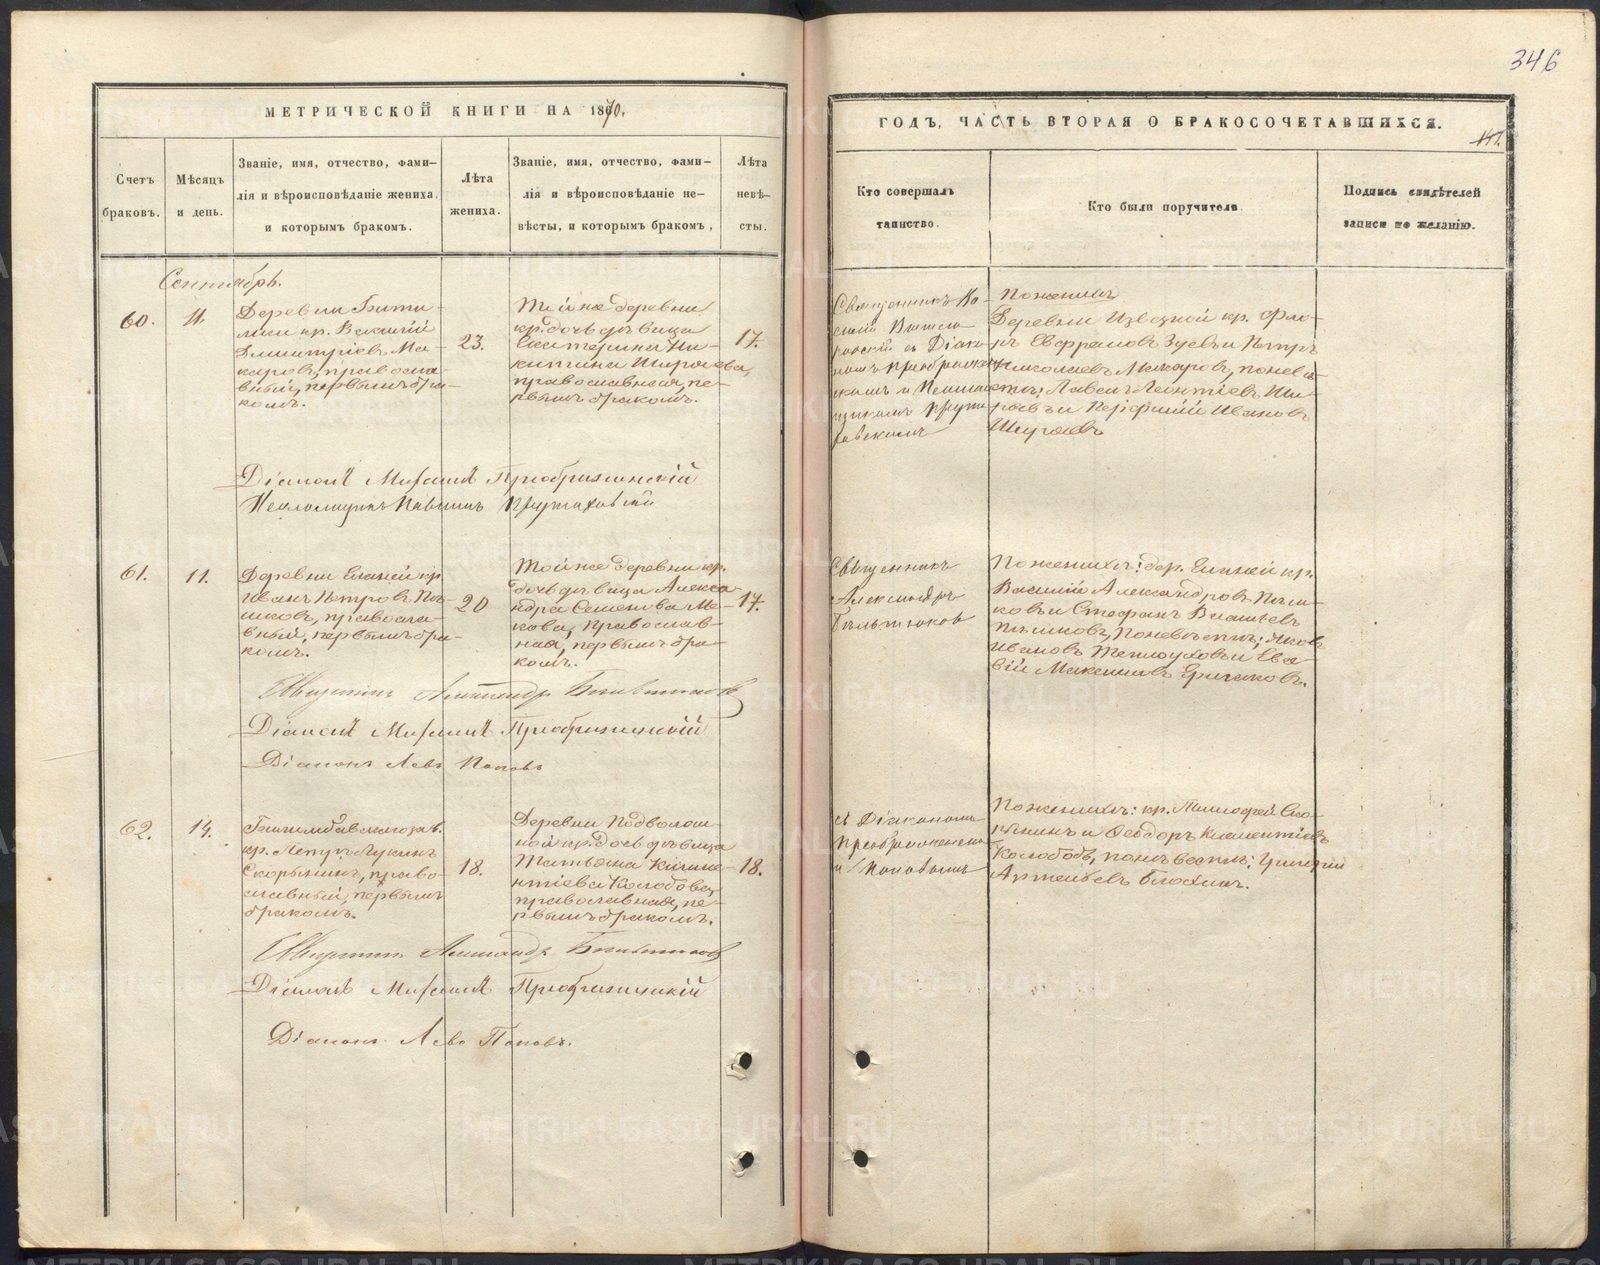 346
МЕТРИЧЕСКОЙ КНИГИ НА 1870.
ГОДЪ, ЧАСТЬ ВТОРАЯ О БРАКОСОЧЕТАВШИХСЯ.
Счетъ
браковъ.
Мѣсяцъ
и день.
Званіе, имя, отчество, фами-
лія и вѣроисповѣданіе жениха,
и которымъ бракомъ.
Лѣта
жениха.
Званіе, имя, отчество, фами-
лія и вѣроисповѣданіе не-
вѣсты, и которымъ бракомъ,
Лѣта
невѣ-
сты.
Кто совершалъ
таинство.
Кто были поручители
Подпись свидѣтелей
записи по желанію.
Сентябрь.
60.
11.
Деревни
кр.
Димитріевъ Ма-
каровъ, правосла-
вный, первымъ бра-
комъ.
23.
Той же деревни
кр. дочь дѣвица
Екатерина Ни-
китина Шираева,
православная, пе-
рвымъ бракомъ.
17.
Священникъ
съ Діако-
номъ Преображен
скимъ и
По женихѣ
Деревни кр.
Зуевъ и Петръ
Николаевъ Макаровъ, по невѣ-
стѣ; Павелъ Леонтіевъ Ши-
раевъ и Ивановъ
Шираевъ
Діаконъ Михаилъ Преображенскій
61.
11.
Деревни кр.
Иванъ Петровъ
правосла-
вный, первымъ бра-
комъ.
20
Той же деревни кр.
дочь дѣвица Алекса
ндра Семенова
православ-
ная, первымъ бра-
комъ.
17.
Священникъ
Александръ
По женихѣ: дер. кр.
Василій Александровъ
и Стефанъ
по невѣстѣ; Яковъ
Ивановъ Теплоуховъ и
Священникъ Александръ
Діаконъ Михаилъ Преображенскій
Діаконъ Левъ Поповъ
62.
14.
кр. Петръ Лукинъ
Скорынинъ, право-
славный, первымъ
бракомъ.
18.
Деревни Подволош-
ной кр. дочь дѣвица
Татьяна Климе-
нтіева Колобова,
православная, пе-
рвымъ бракомъ.
18.
съ Діакономъ
Преображенски
и Поповымъ
По женихѣ: кр. Тимофей Ско-
рынинъ и Ѳеодоръ Климентіевъ
Колобовъ, по невѣстѣ: Григорій
Артемьевъ Блохинъ.
Священникъ Александръ
Діаконъ Михаилъ Преображенскій
Діаконъ Левъ Поповъ.
METRIKI.GASO-URAL.RU